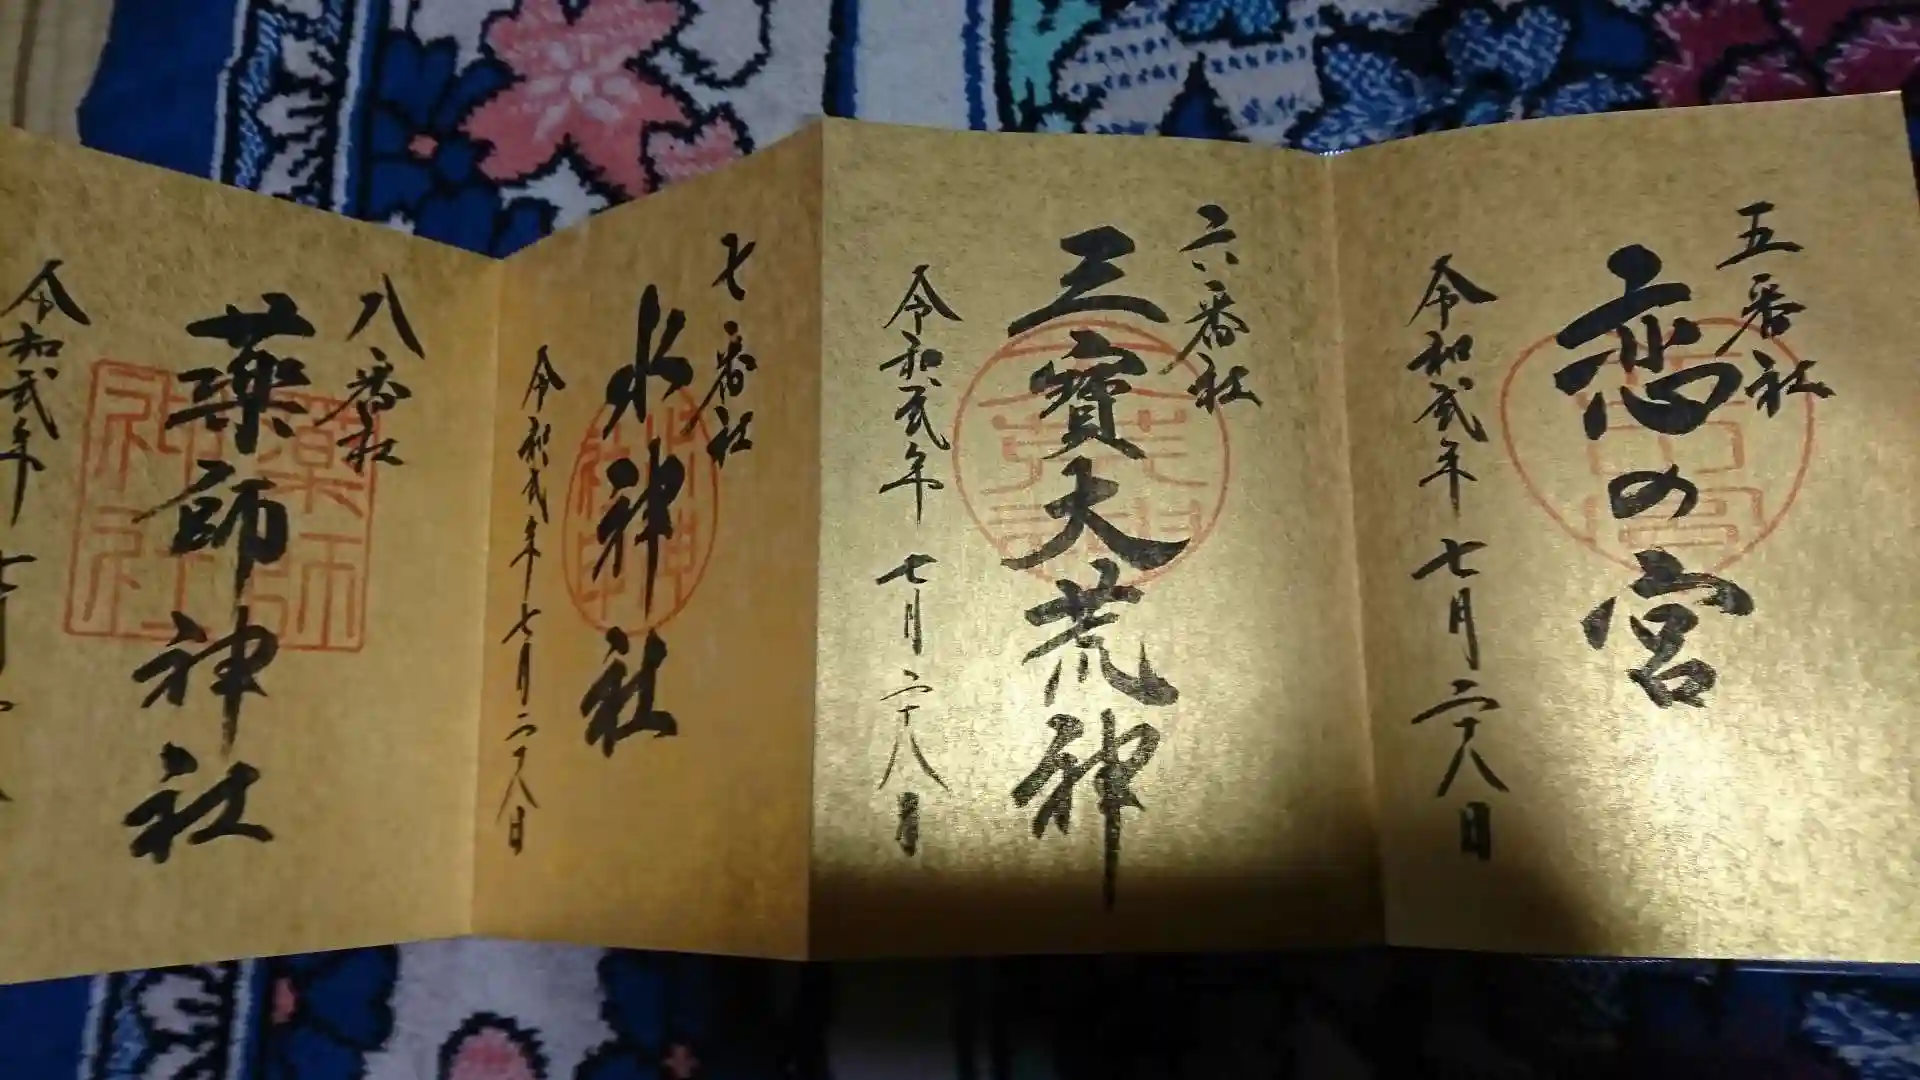 五番社
恋の宮
令和弐年七月二十八日
六番社
三寳大荒神
令和弐年七月二十八日
七番社
水神社
令和弐年七月二十八日
八番社
薬師神社
令和弐年七月